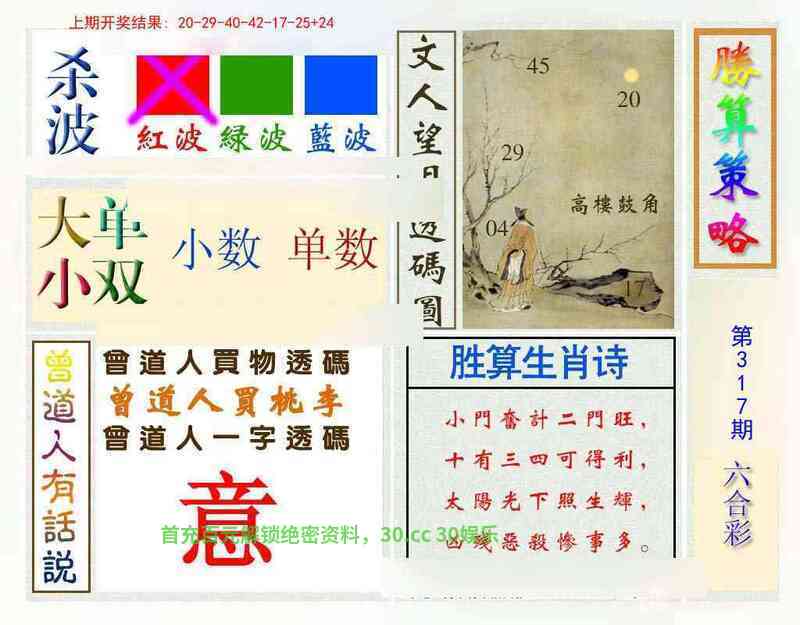 上期开奖结果：20-29-40-42-17-25+24
杀波
紅波 緑波 藍波
大单小双
小数 单数
文人望月透碼圖
45
20
29
高樓鼓角
04
17
勝算策略
曾道人有話説
曾道人買物透碼
曾道人買桃李
曾道人一字透碼
意
首充百元解锁绝密资料，30.cc 30娱乐
胜算生肖诗
小門奮計二門旺，
十有三四可得利，
太陽光下照生輝，
凶殘惡殺慘事多。
第317期
六合彩